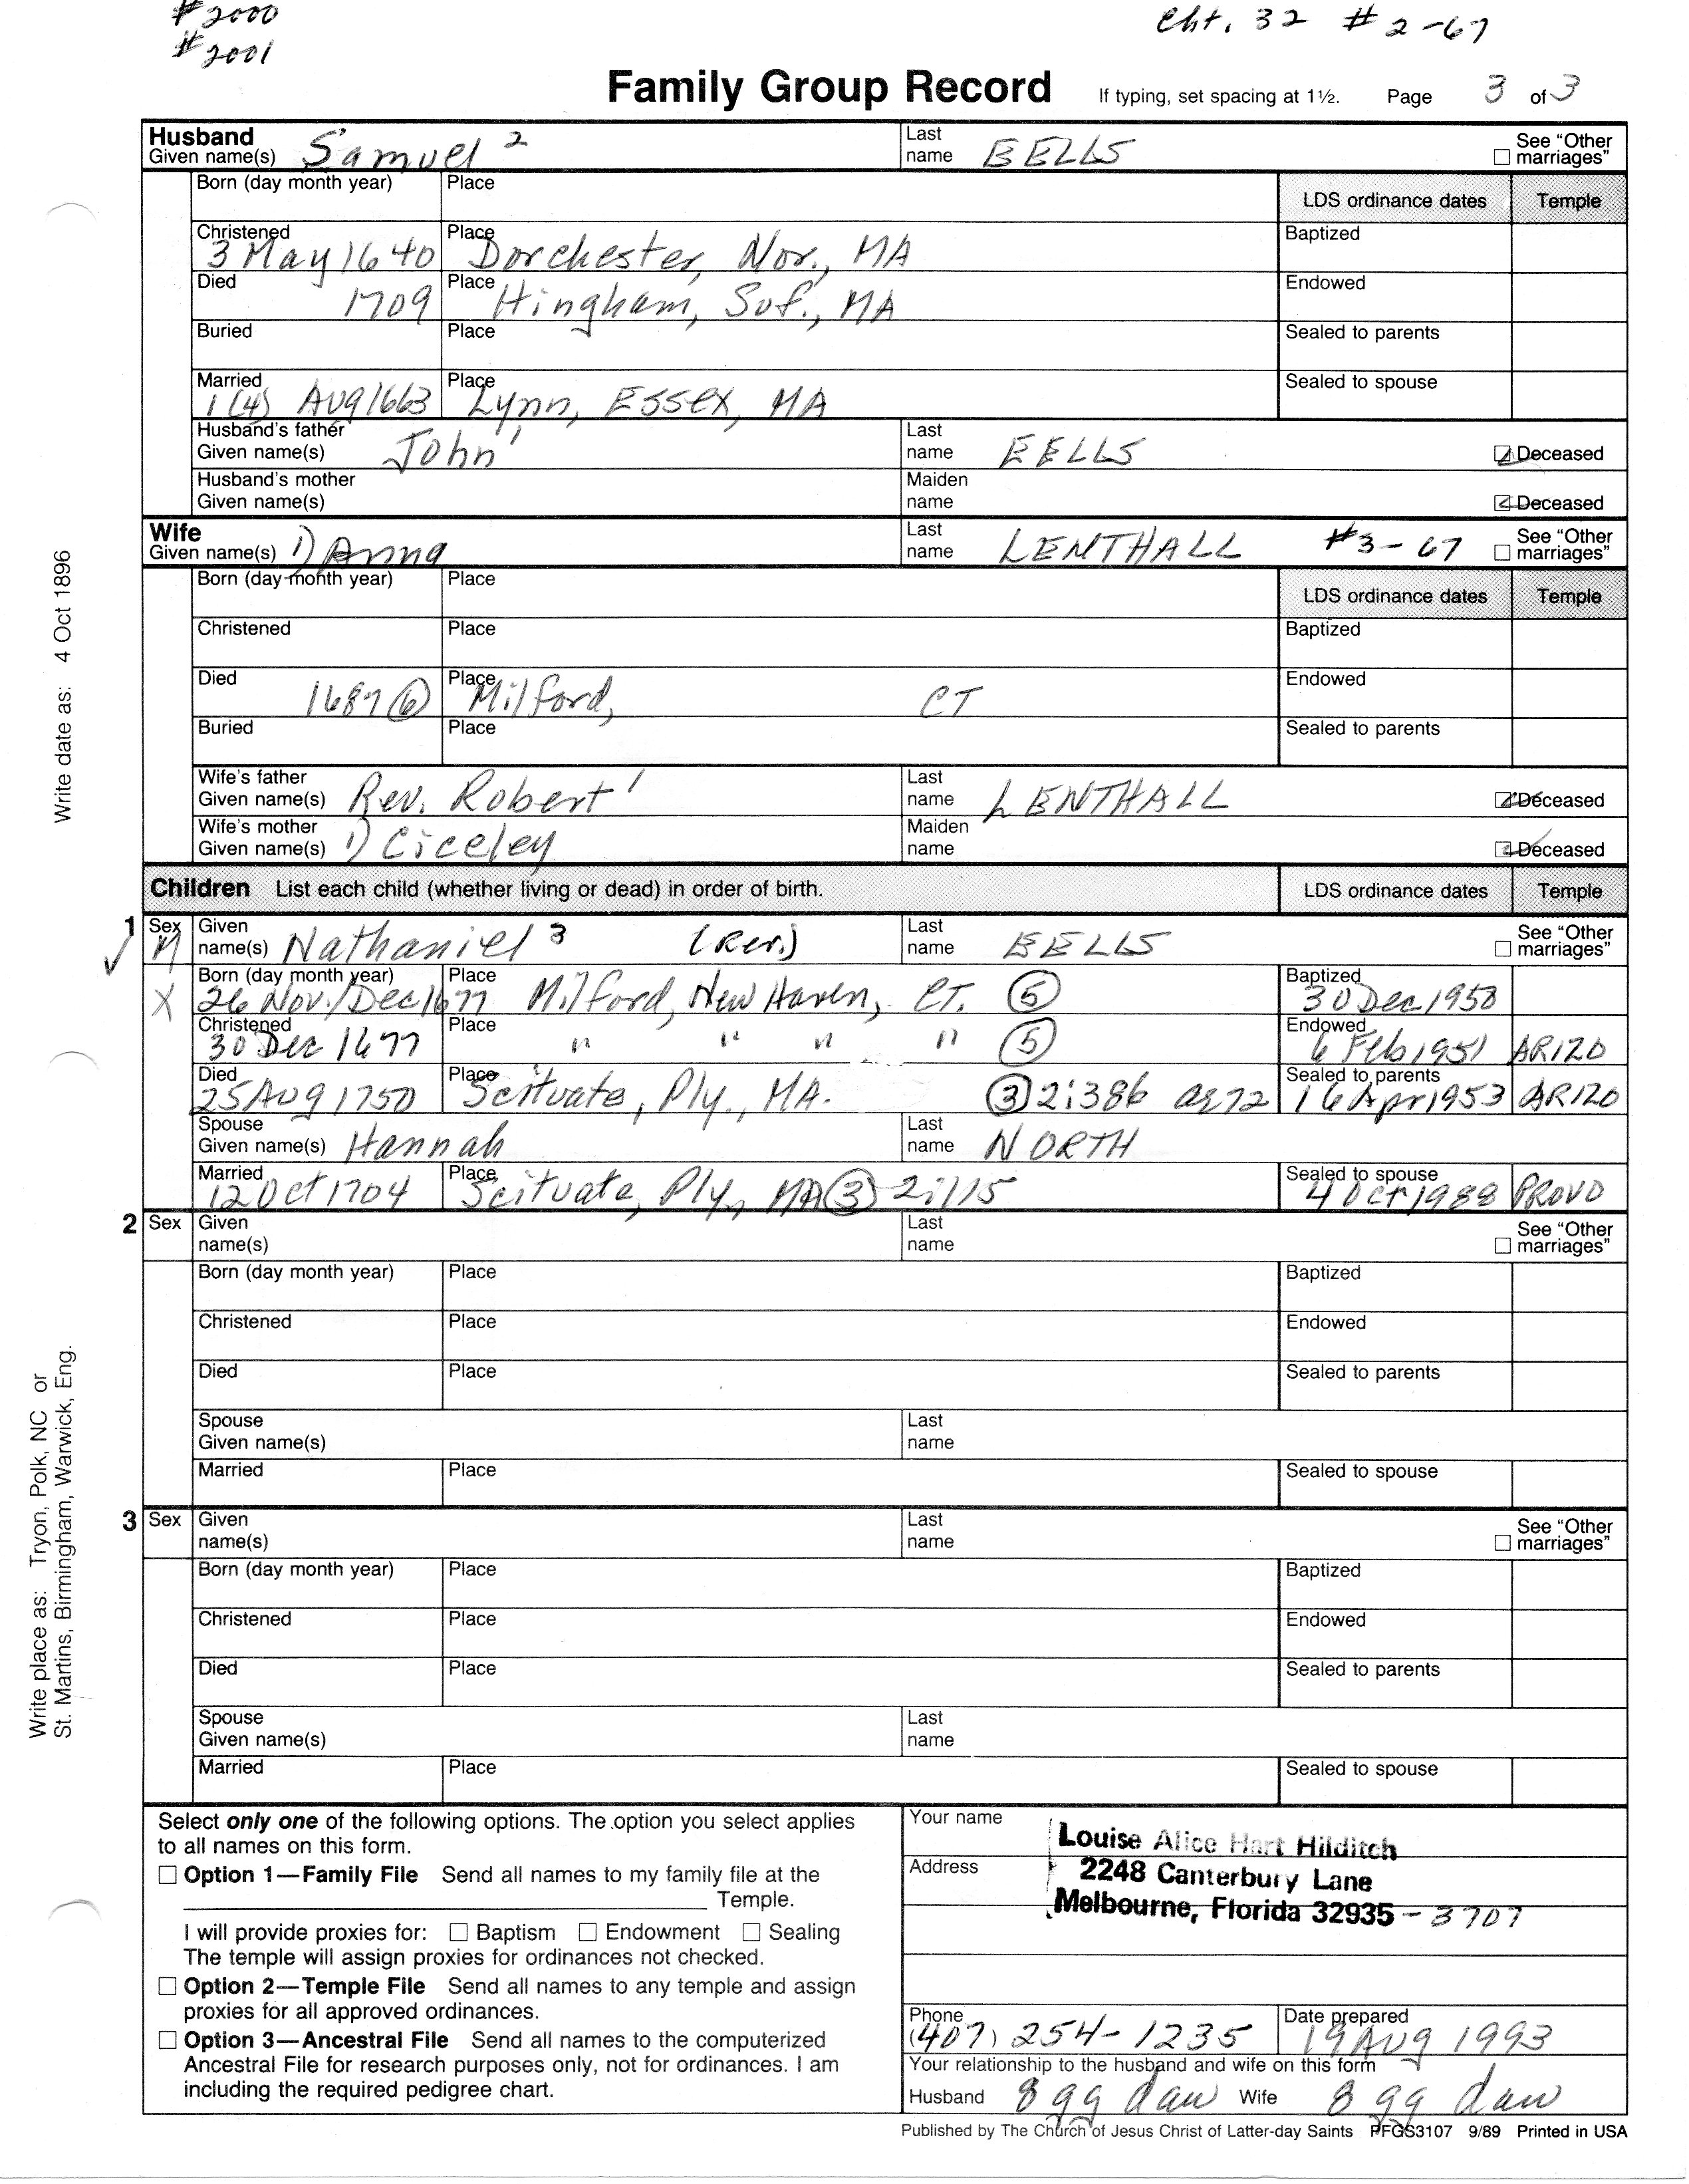 #2000
#2001
Cht. 32 # 2-67
Family Group Record If typing, set spacing at 1½. Page 3 of 3
Husband
Given name(s) Samuel 2 Last name EELLS See “Other marriages”
Born (day month year) Place LDS ordinance dates Temple
Christened 3 May 1640 Place Dorchester, Nor., MA Baptized
Died 1709 Place Hingham, Suf., MA Endowed
Buried Place Sealed to parents
Married 1(4) Aug 1663 Place Lynn, Essex, MA Sealed to spouse
Husband's father Given name(s) John 1 Last name EELLS Deceased
Husband's mother Given name(s) Maiden name Deceased
Wife
Given name(s) 1) Anna Last name LENTHALL #3-67 See “Other marriages”
Born (day month year) Place LDS ordinance dates Temple
Christened Place Baptized
Died 1687 (6) Place Milford, CT Endowed
Buried Place Sealed to parents
Wife's father Given name(s) Rev. Robert 1 Last name LENTHALL Deceased
Wife's mother Given name(s) 1) Ciceley Maiden name Deceased
Children List each child (whether living or dead) in order of birth. LDS ordinance dates Temple
1 Sex M Given name(s) Nathaniel 3 (Rev.) Last name EELLS See “Other marriages”
X Born (day month year) 26 Nov./Dec 1677 Place Milford, New Haven, CT. (5) Baptized 30 Dec 1950
Christened 30 Dec 1677 Place " " " " (5) Endowed 6 Feb 1951 ARIZO
Died 25 Aug 1750 Place Scituate, Ply., MA. (3) 2:386 ag 72 Sealed to parents 16 Apr 1953 ARIZO
Spouse Given name(s) Hannah Last name NORTH
Married 12 Oct 1704 Place Scituate, Ply., MA (3) 2:115 Sealed to spouse 4 Oct 1988 PROVO
2 Sex Given name(s) Last name See “Other marriages”
Born (day month year) Place Baptized
Christened Place Endowed
Died Place Sealed to parents
Spouse Given name(s) Last name
Married Place Sealed to spouse
3 Sex Given name(s) Last name See “Other marriages”
Born (day month year) Place Baptized
Christened Place Endowed
Died Place Sealed to parents
Spouse Given name(s) Last name
Married Place Sealed to spouse
Write date as: 4 Oct 1896
Write place as: Tryon, Polk, NC or
St. Martins, Birmingham, Warwick, Eng.
Select only one of the following options. The option you select applies
to all names on this form.
Option 1—Family File Send all names to my family file at the
Temple.
I will provide proxies for: Baptism Endowment Sealing
The temple will assign proxies for ordinances not checked.
Option 2—Temple File Send all names to any temple and assign
proxies for all approved ordinances.
Option 3—Ancestral File Send all names to the computerized
Ancestral File for research purposes only, not for ordinances. I am
including the required pedigree chart.
Your name Louise Alice Hart Hilditch
Address 2248 Canterbury Lane
Melbourne, Florida 32935-3707
Phone (407) 254-1235 Date prepared 19 Aug 1993
Your relationship to the husband and wife on this form
Husband 8 gg dau Wife 8 gg dau
Published by The Church of Jesus Christ of Latter-day Saints PFGS3107 9/89 Printed in USA